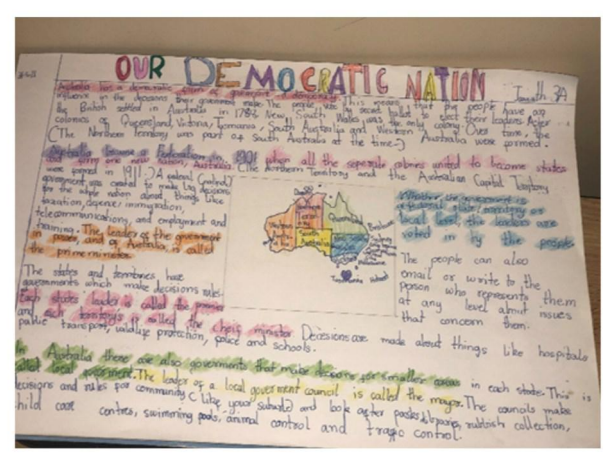 OUR DEMOCRATIC NATION
3A
Australia has a democratic form of government a democracy. This means that the people have an
influence in the decisions their government make. The people vote by secret ballot to elect their leaders. After
the British settled in Australia in 1788, New South Wales was the only colony. Over time, the
colonies of Queensland, Victoria, Tasmania, South Australia and Western Australia were formed.
(The Northern Territory was part of South Australia at the time.)
Australia became a Federation in 1901 when all the separate colonies united to become states
and form one new nation, Australia. (The Northern Territory and the Australian Capital Territory
were formed in 1911.) A federal (central)
government was created to make big decisions
for the whole nation about things like
taxation, defence, immigration,
telecommunications, and employment and
training. The leader of the government
in power, and of Australia, is called
the prime minister.
Darwin
Queensland
Brisbane
South
Australia
Tasmania
Hobart
Whether the government is
a federal, state/territory or
local level, the leaders are
voted in by the people
The people can also
email or write to the
person who represents them
at any level about issues
that concern them.
The states and territories have
governments which make decisions rules
Each states leader is called the premier
and each territory's is called the chief minister
Decisions are made about things like hospitals
public transport, wildlife protection, police and schools.
In Australia there are also governments that make decisions for smaller areas in each state. This is
called local government. The leader of a local goverment council is called the mayor. The councils make
decisions and rules for community (like your suburb) and look after parks, libraries, rubbish collection,
child care centres, swimming pools, animal control and traffic control.